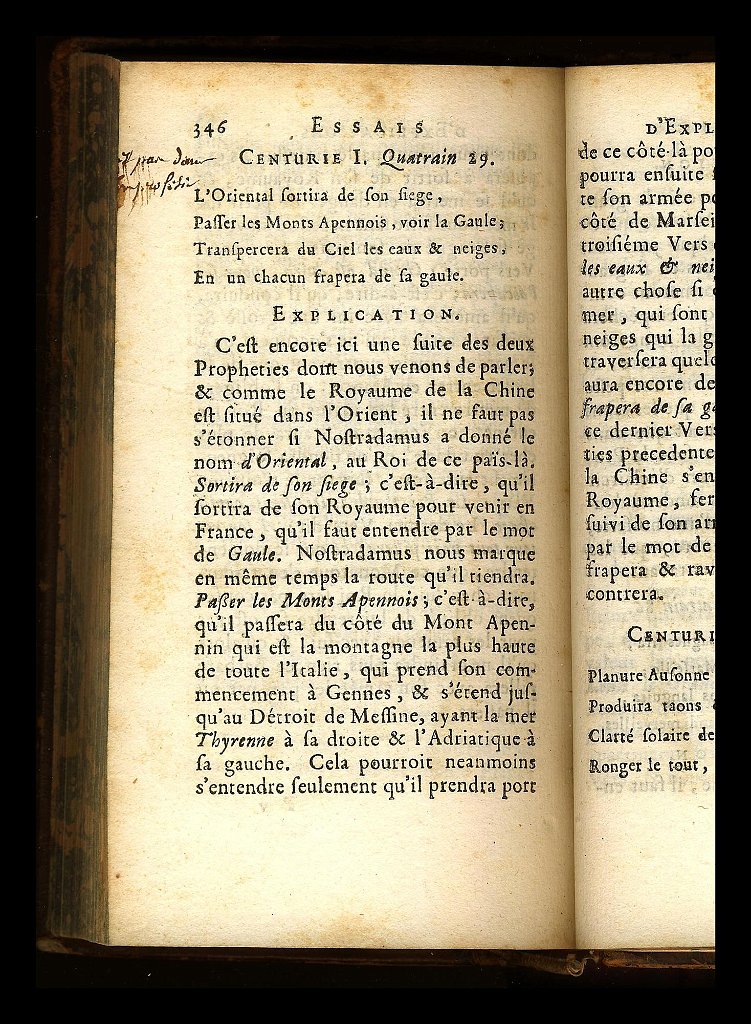 346 ESSAIS
CENTURIE I. Quatrain 29.
L'Oriental sortira de son siege,
Passer les Monts Apennois, voir la Gaule;
Transpercera du Ciel les eaux & neiges,
En un chacun frapera de sa gaule.
EXPLICATION.
C'est encore ici une suite des deux
Propheties dont nous venons de parler;
& comme le Royaume de la Chine
est situé dans l'Orient, il ne faut pas
s'étonner si Nostradamus a donné le
nom d'Oriental, au Roi de ce païs-là.
Sortira de son siege; c'est-à-dire, qu'il
sortira de son Royaume pour venir en
France, qu'il faut entendre par le mot
de Gaule. Nostradamus nous marque
en même temps la route qu'il tiendra.
Paßer les Monts Apennois; c'est-à-dire,
qu'il passera du côté du Mont Apen-
nin qui est la montagne la plus haute
de toute l'Italie, qui prend son com-
mencement à Gennes, & s'étend jus-
qu'au Détroit de Messine, ayant la mer
Thyrenne à sa droite & l'Adriatique à
sa gauche. Cela pourroit neanmoins
s'entendre seulement qu'il prendra port
D'EXPL
de ce côté-là po
pourra ensuite
te son armée p
côté de Marsei
troisiéme Vers
les eaux & nei
autre chose si
mer, qui sont
neiges qui la g
traversera quelq
aura encore de
frapera de sa g
ce dernier Vers
ties precedente
la Chine s'en
Royaume, fer
suivi de son ar
par le mot de
frapera & rav
contrera.
CENTURI
Planure Ausonne
Produira taons
Clarté solaire de
Ronger le tout,